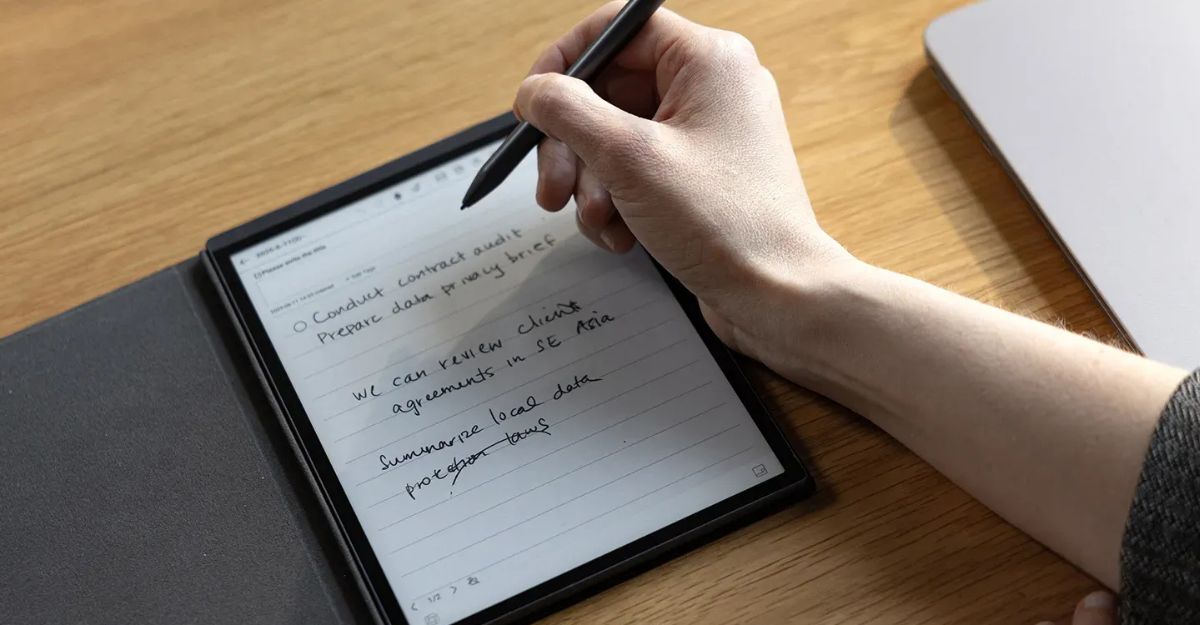 Please write the title
Conduct contract audit
Prepare data privacy brief
we can review client
agreements in SE Asia
Summarize local data
protection laws
1/2